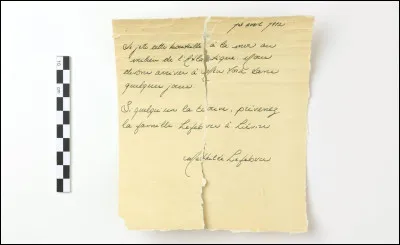 13 avril 1912
Je jette cette bouteille à la mer au
milieu de l'Atlantique. Nous
devons arriver à New York dans
quelques jours
Si quelqu'un la trouve, prévenez
la famille Lefebvre à Liévin
Mathilde Lefebvre